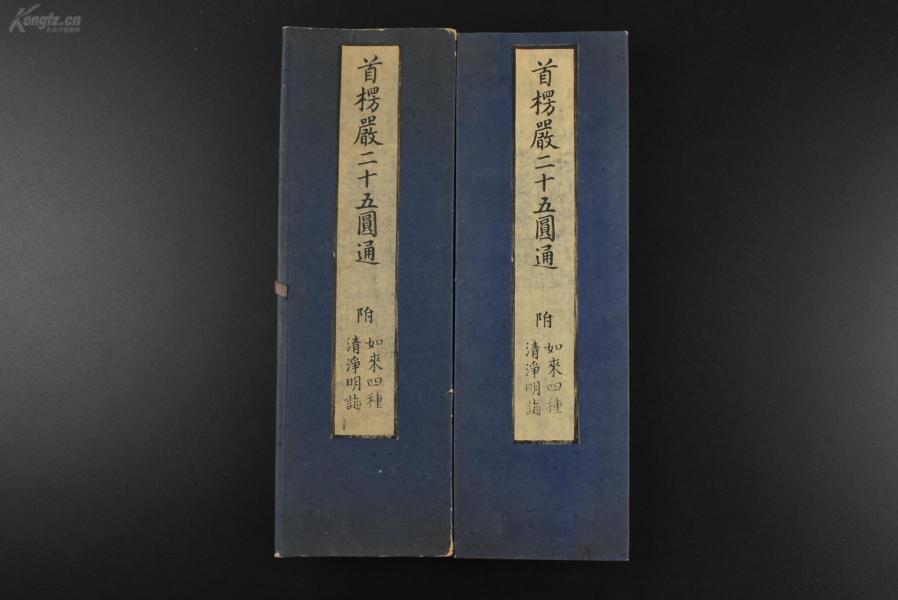 Kongfz.cn
首楞嚴二十五圓通
附
如來四種
清淨明誨
首楞嚴二十五圓通
附
如來四種
清淨明誨